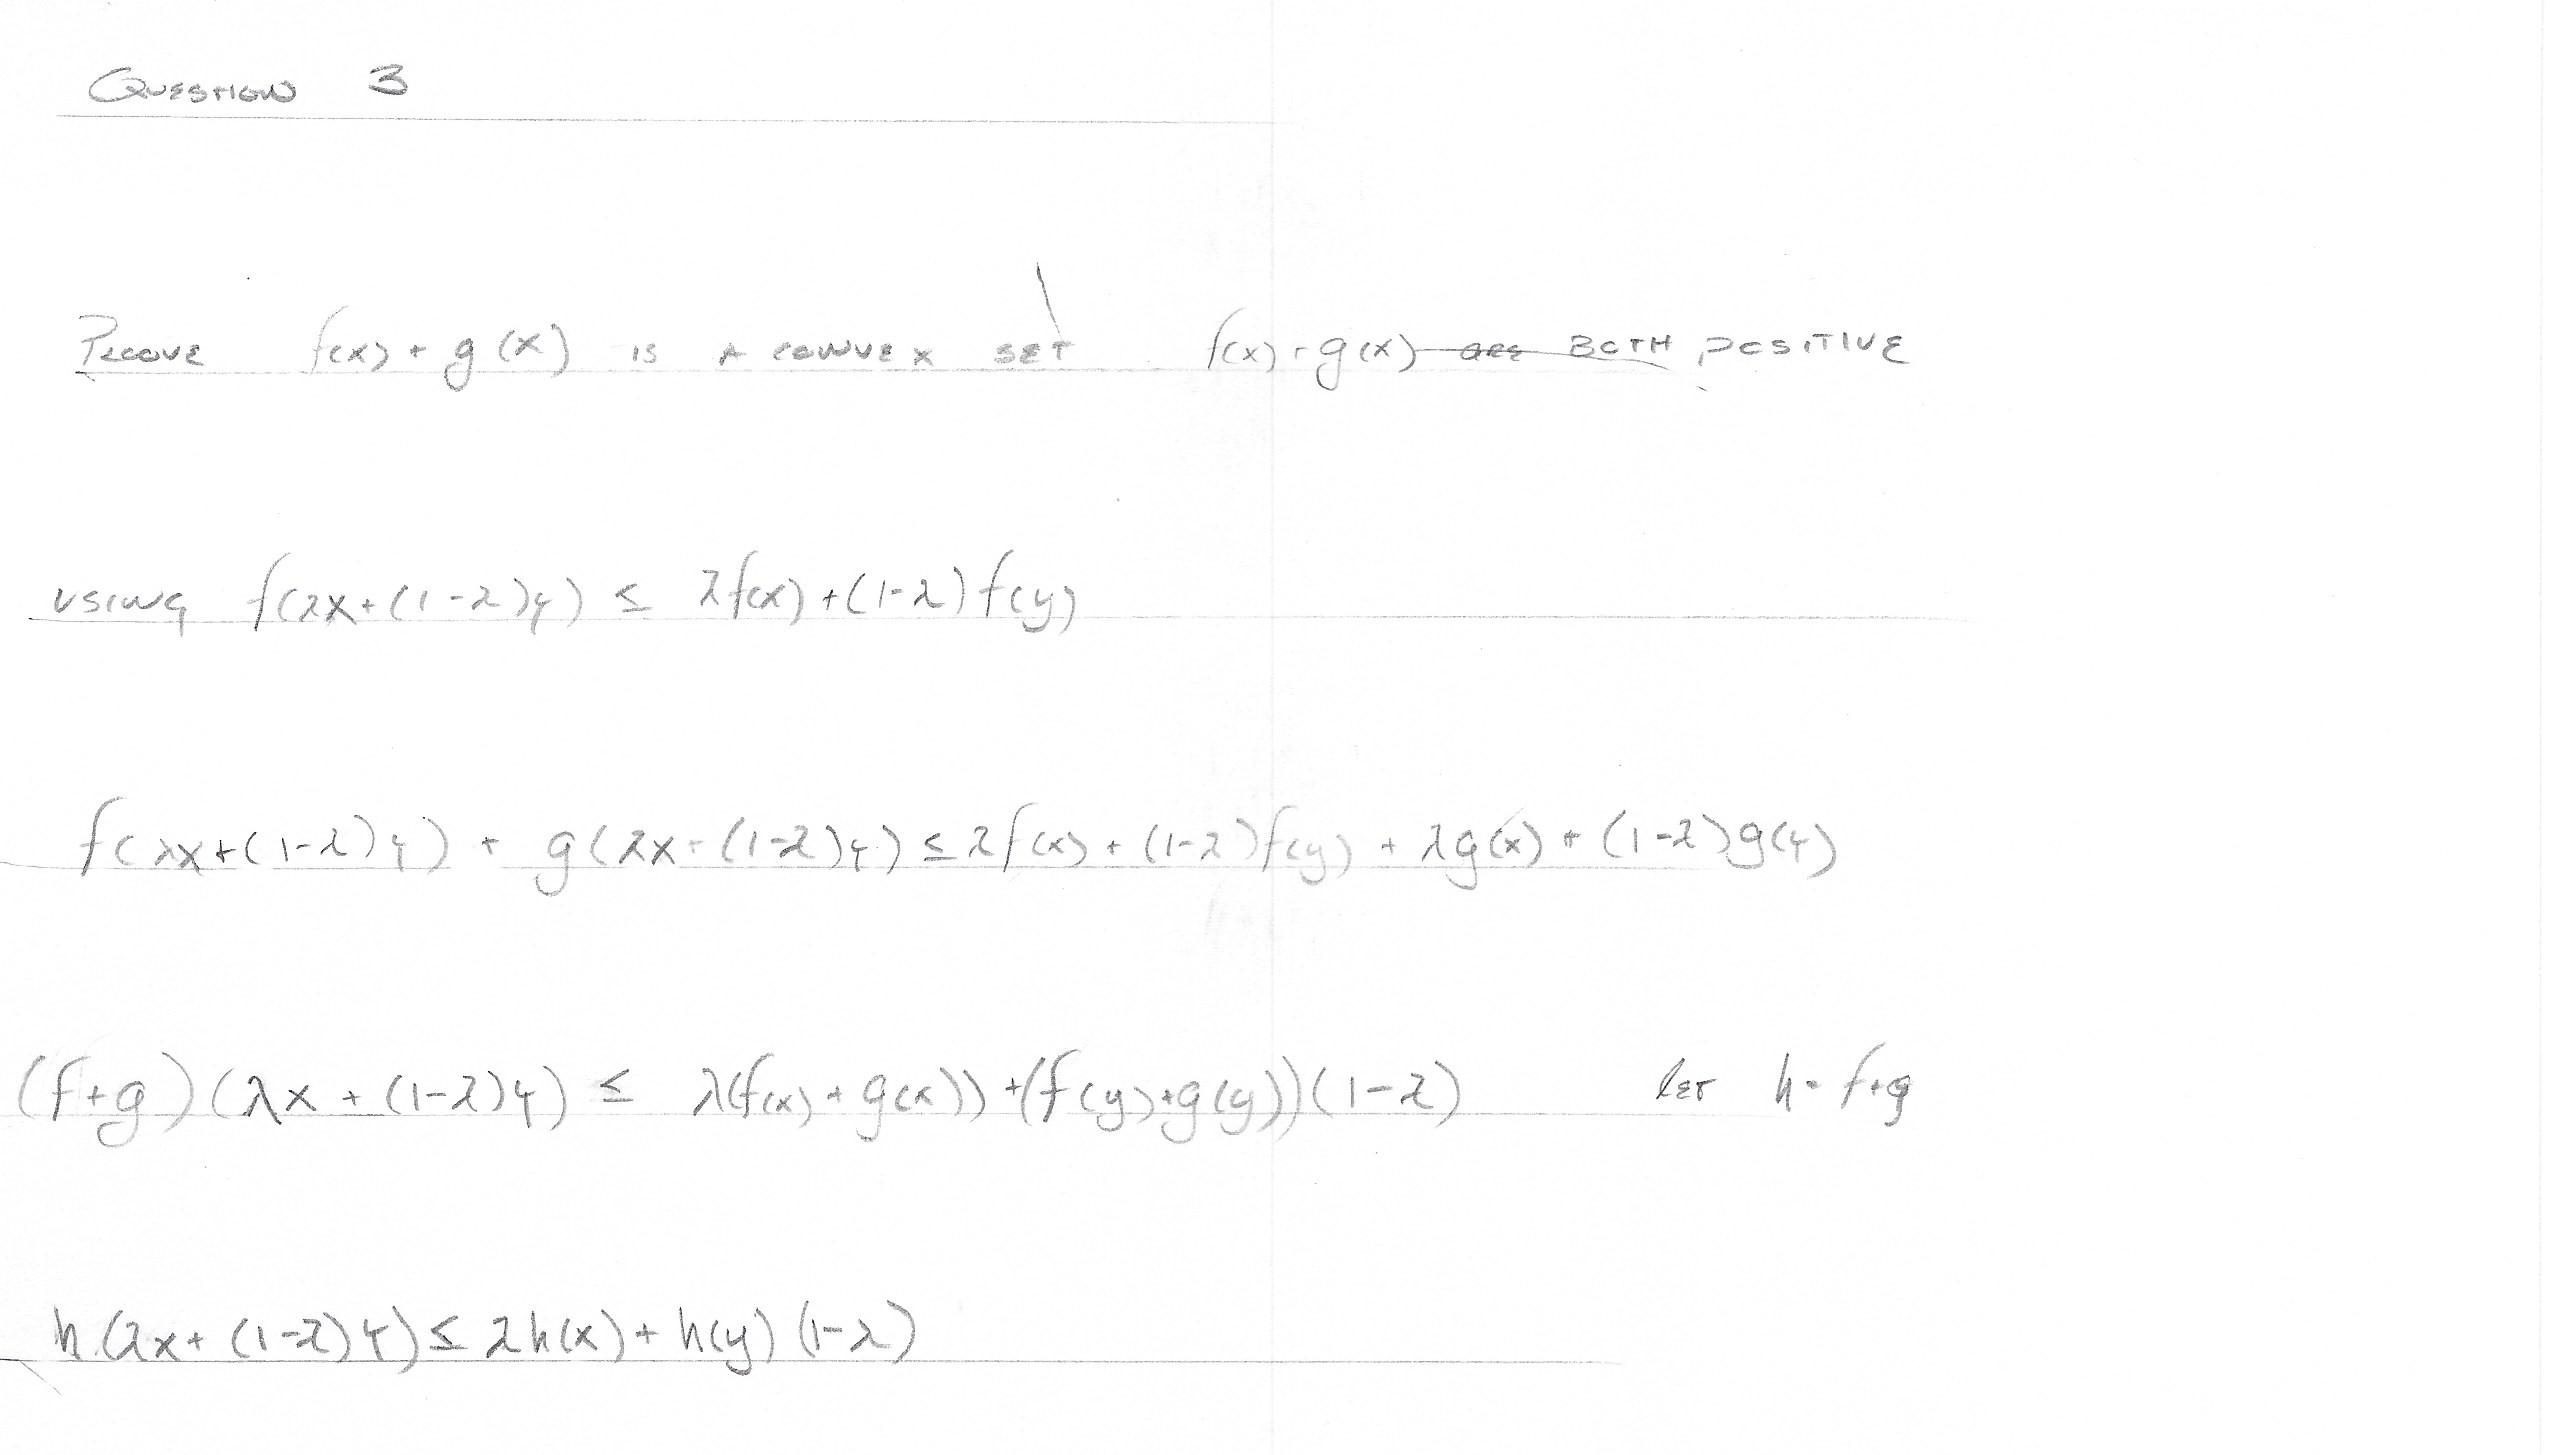 QUESTION 3
PROVE f(x) + g(x) is A CONVEX SET f(x) + g(x) are BOTH POSITIVE
USING f(λx+(1-λ)y) ≤ λf(x)+(1-λ)f(y)
f(λx+(1-λ)y) + g(λx+(1-λ)y) ≤ λf(x) + (1-λ)f(y) + λg(x) + (1-λ)g(y)
(f+g)(λx + (1-λ)y) ≤ λ(f(x) + g(x)) + (f(y)+g(y))(1-λ) let h = f+g
h(λx+(1-λ)y) ≤ λh(x) + h(y)(1-λ)